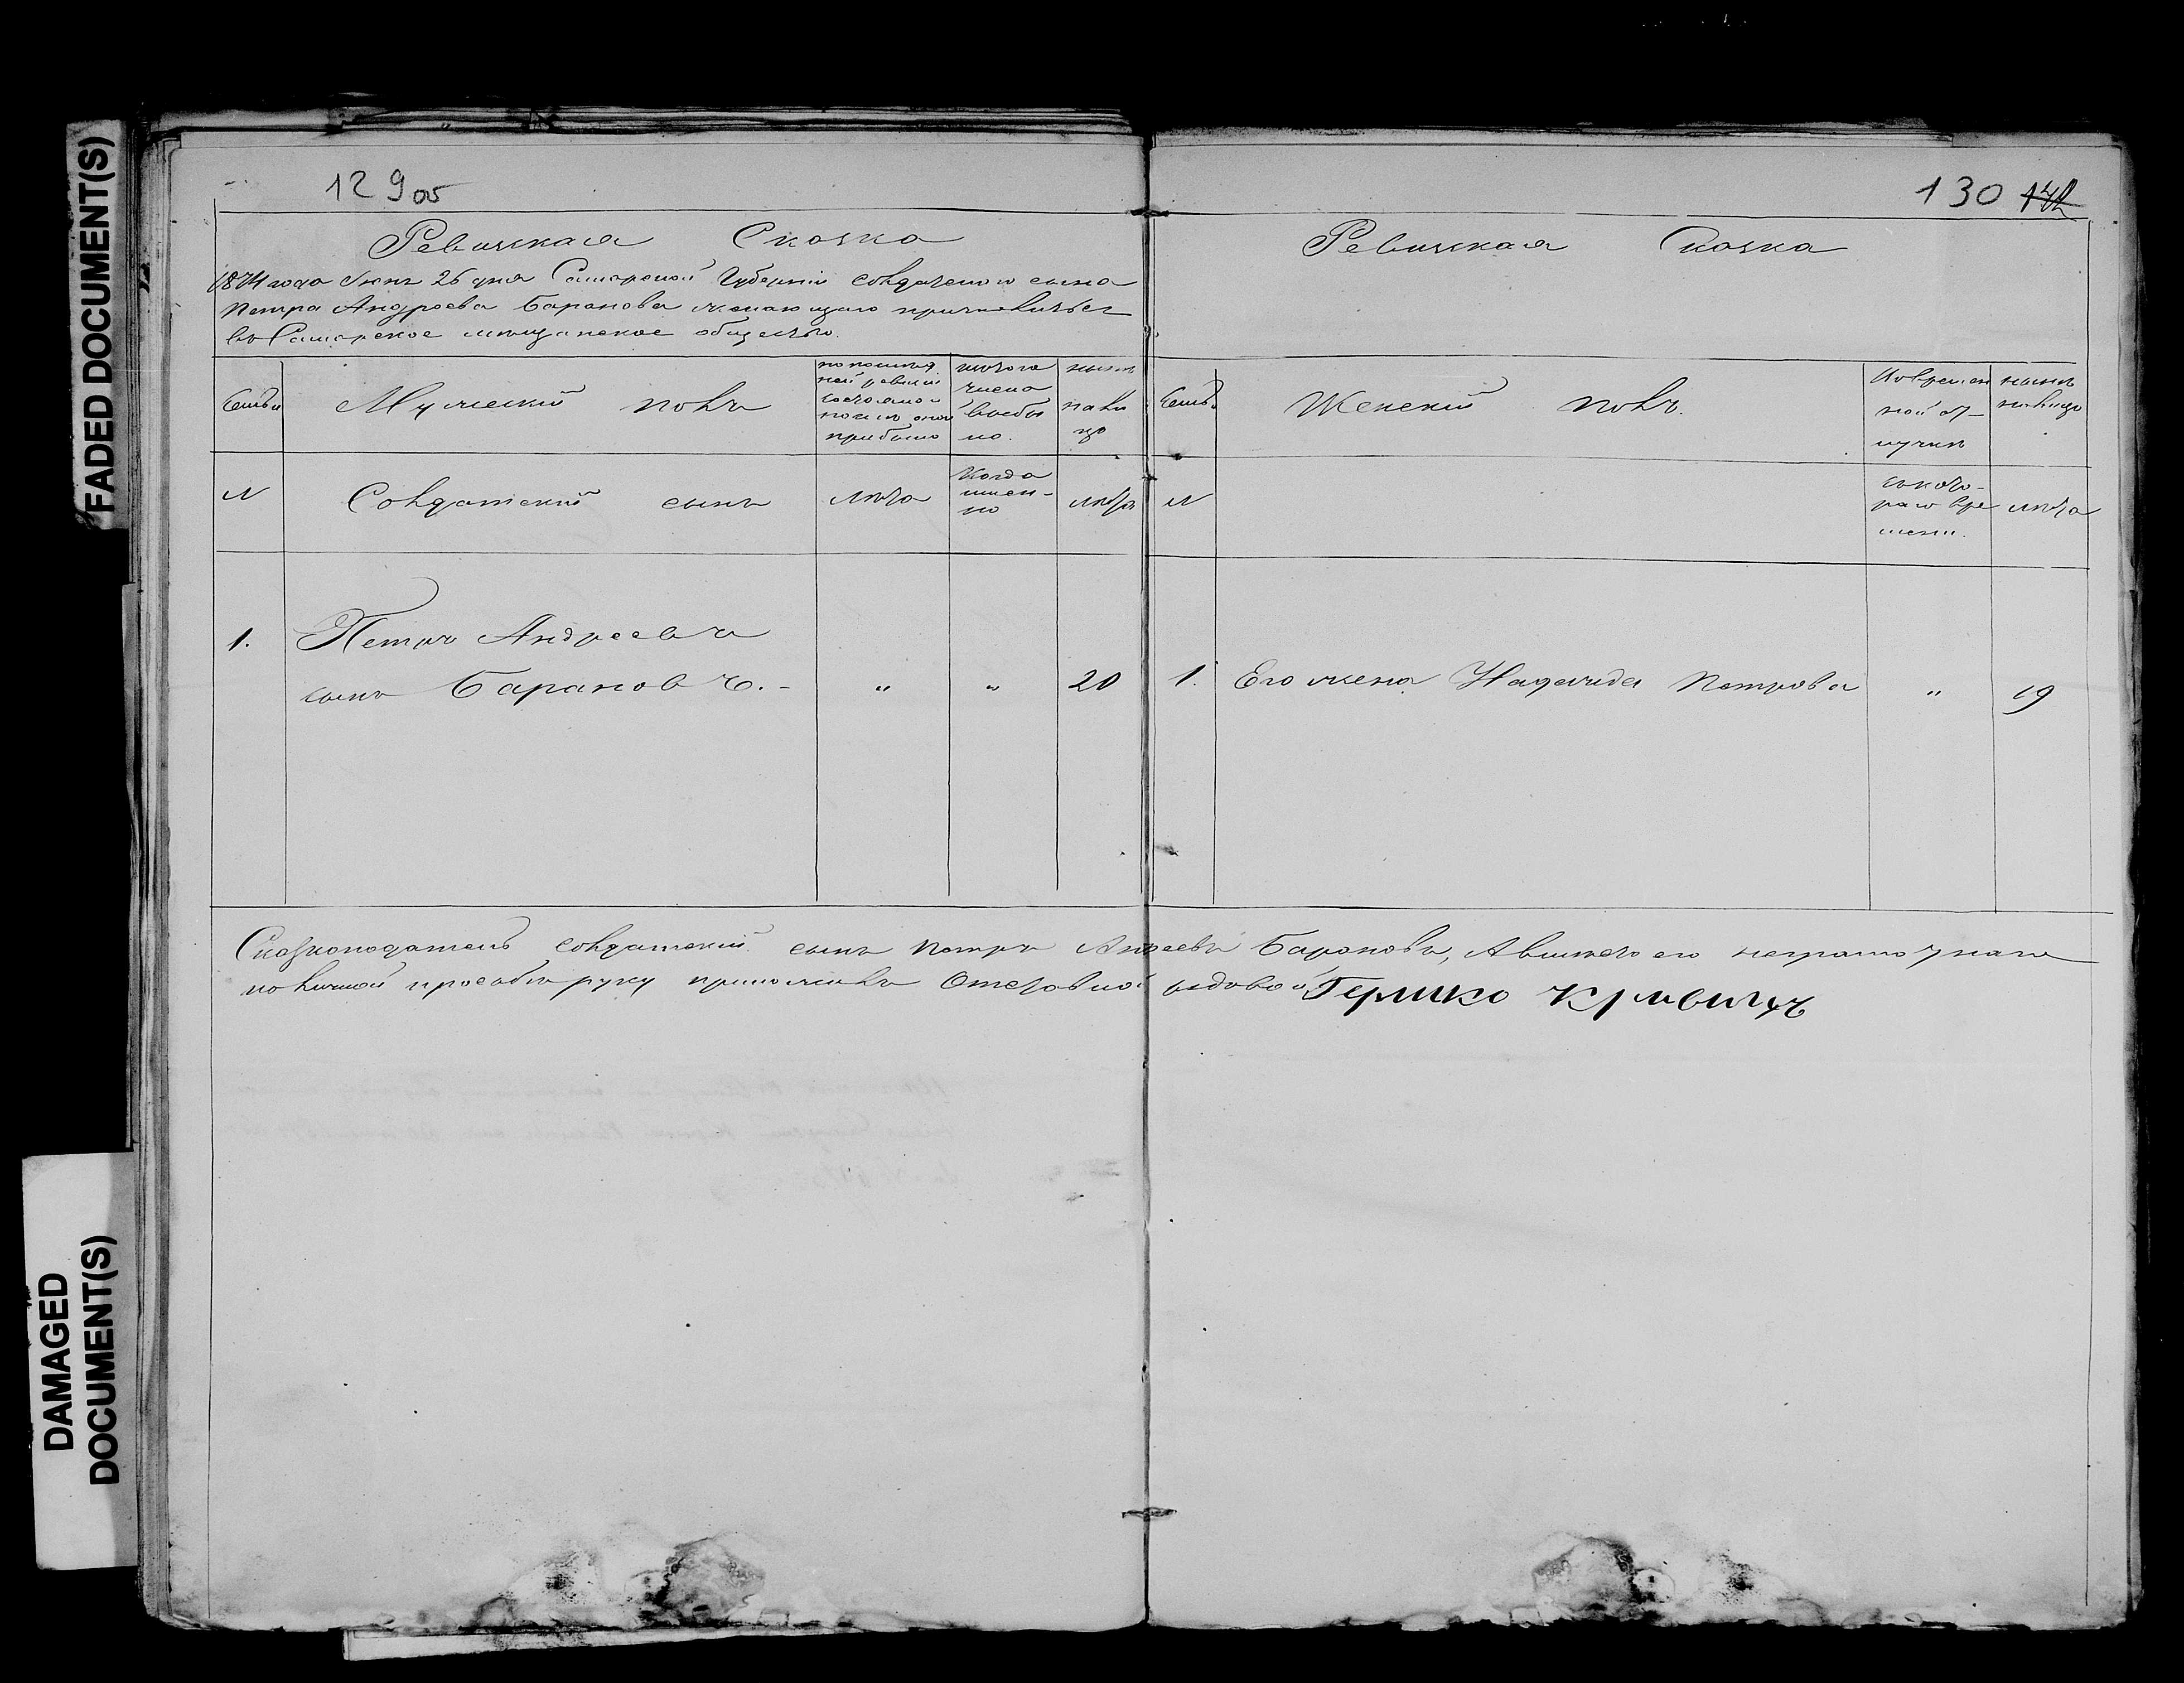 FADED DOCUMENT(S)
DAMAGED
DOCUMENT(S)
129 об
Ревизская Сказка
1874 года Июня 26 дня Самарской Губернии солдатского сына
Петра Андреева Баранова желающаго причислиться
въ Самарское мещанское общество.
Семьи
Мужескій полъ
по послѣд
ней ревизіи
состояло и
после оной
прибыло
изтого
числа
выбы
ло.
нынѣ
на ли
цо
N
Солдатскій сынъ
лѣта
Когда
имен-
но
лѣта
1.
Петръ Андреевъ
сынъ Барановъ.-
"
"
20
130 142
Ревизская Сказка
Семьи
Женскій полъ.
Во времен
ной от-
лучкѣ
нынѣ
на лицо
N
съ кото-
раго вре
мени.
лѣта
1.
Его жена Надежда Петрова
"
19
Сказкоподатель солдатскій сынъ Петръ Андреевъ Барановъ, А вместо его неграмотнаго
по личной просьбѣ руку приложилъ Отставной рядовой Гершко Кривицъ